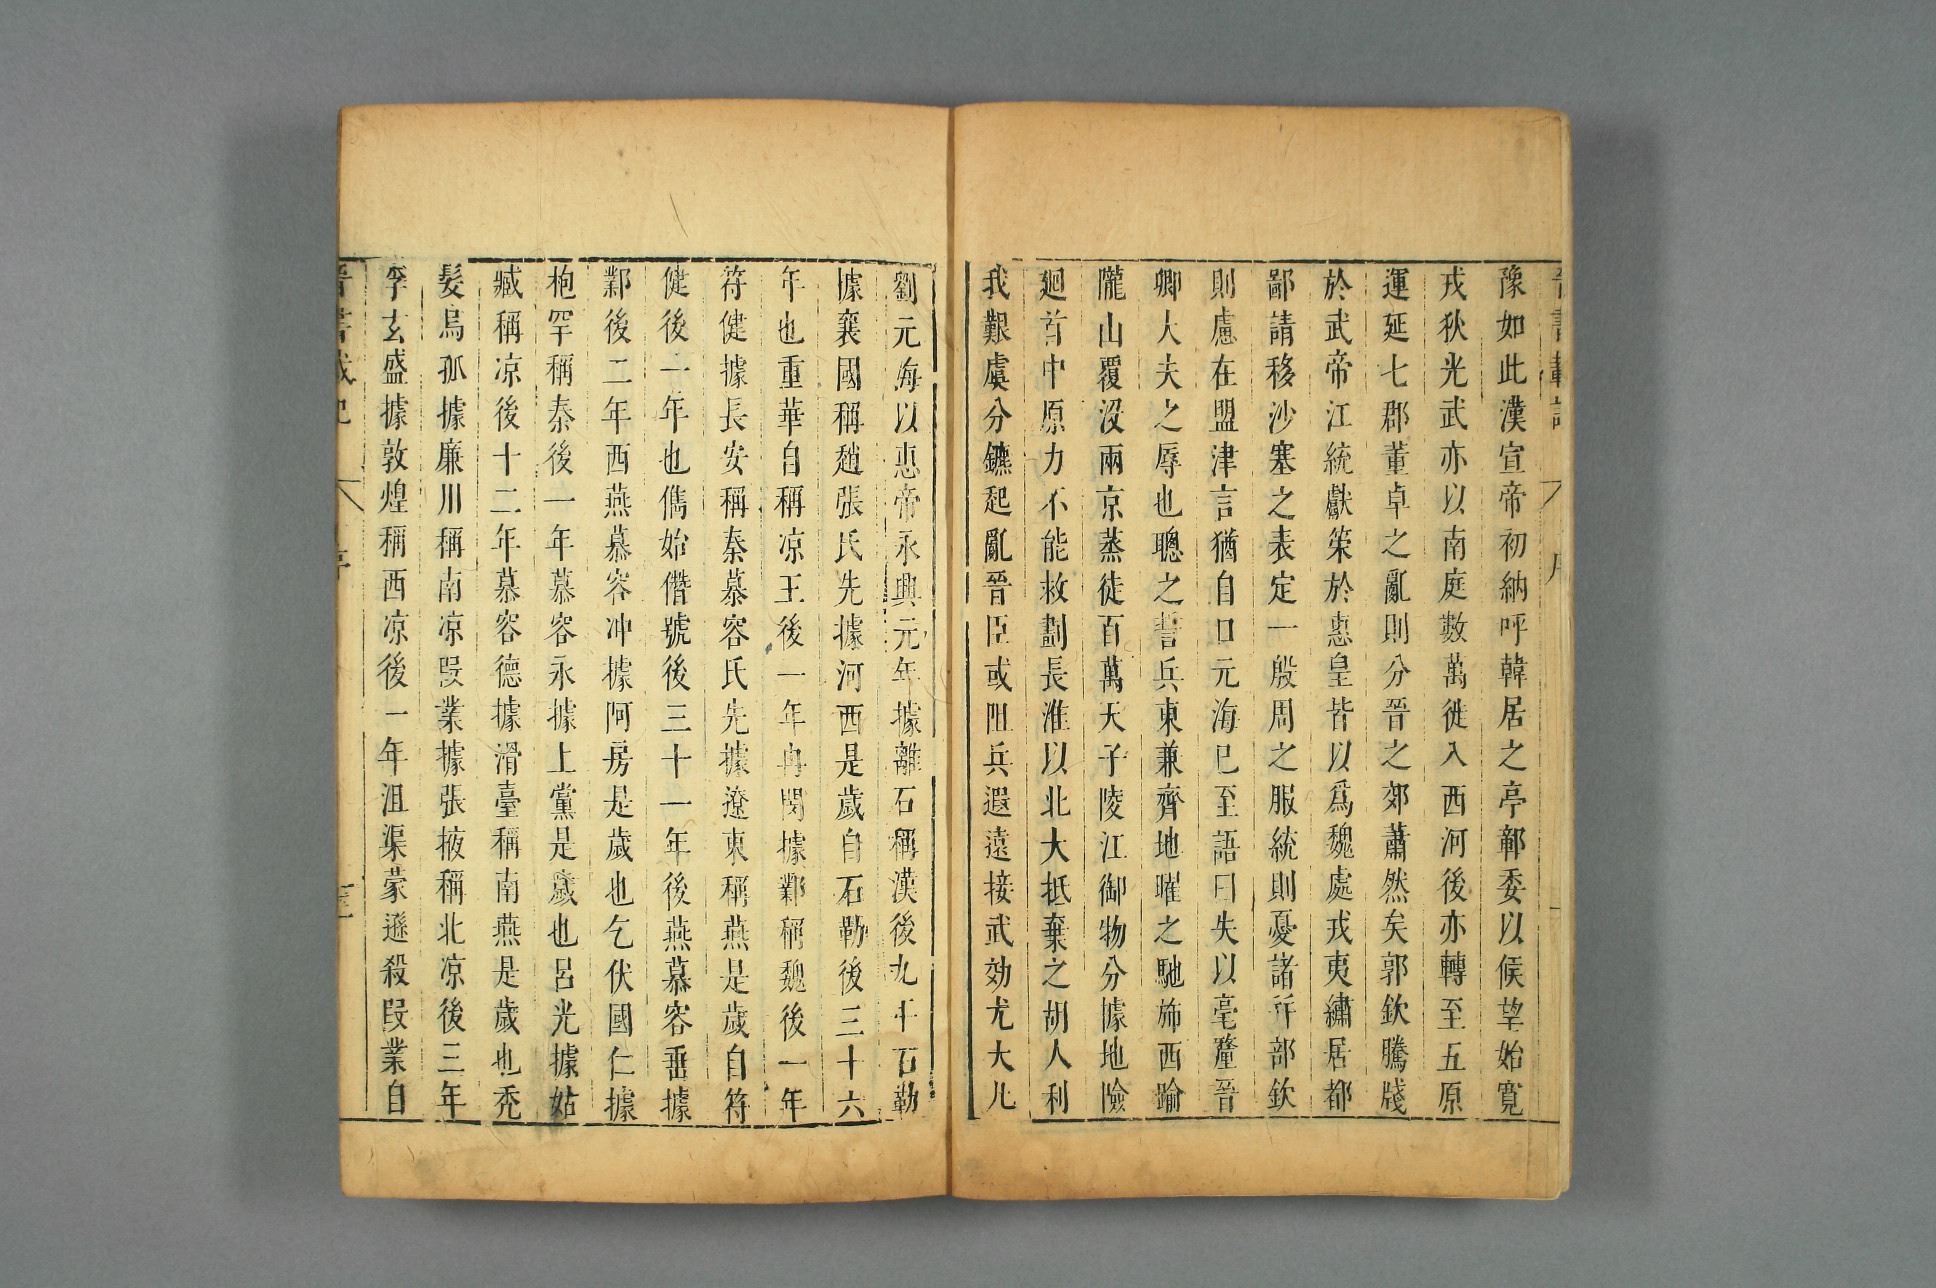 豫如此漢宣帝初納呼韓居之亭鄣委以侯望始寬
戎狄光武亦以南庭數萬徙入西河後亦轉至五原
運延七郡董卓之亂則分晉之郊蕭然矣郭欽騰牋
於武帝江統獻策於惠皇皆以爲魏處戎夷繡居都
鄙請移沙塞之表定一殷周之服統則憂諸幷部欽
則慮在盟津言猶自口元海巳至語曰失以毫釐晉
卿大夫之辱也聰之誓兵東兼齊地曜之馳斾西踰
隴山覆沒兩京蒸徒百萬天子陵江御物分據地險
廻首中原力不能救劃長淮以北大抵棄之胡人利
我艱虞分鑣起亂晉臣或阻兵遐遠接武効尤大凡
劉元海以惠帝永興元年據離石稱漢後九年石勒
據襄國稱趙張氏先據河西是歲自石勒後三十六
年也重華自稱凉王後一年冉閔據鄴稱魏後一年
苻健據長安稱秦慕容氏先據遼東稱燕是歲自苻
健後一年也儁始僭號後三十一年後燕慕容垂據
鄴後二年西燕慕容冲據阿房是歲也乞伏國仁據
枹罕稱秦後一年慕容永據上黨是歲也呂光據姑
臧稱凉後十二年慕容德據滑臺稱南燕是歲也禿
髮烏孤據廉川稱南凉叚業據張掖稱北凉後三年
李玄盛據敦煌稱西凉後一年沮渠蒙遜殺叚業自